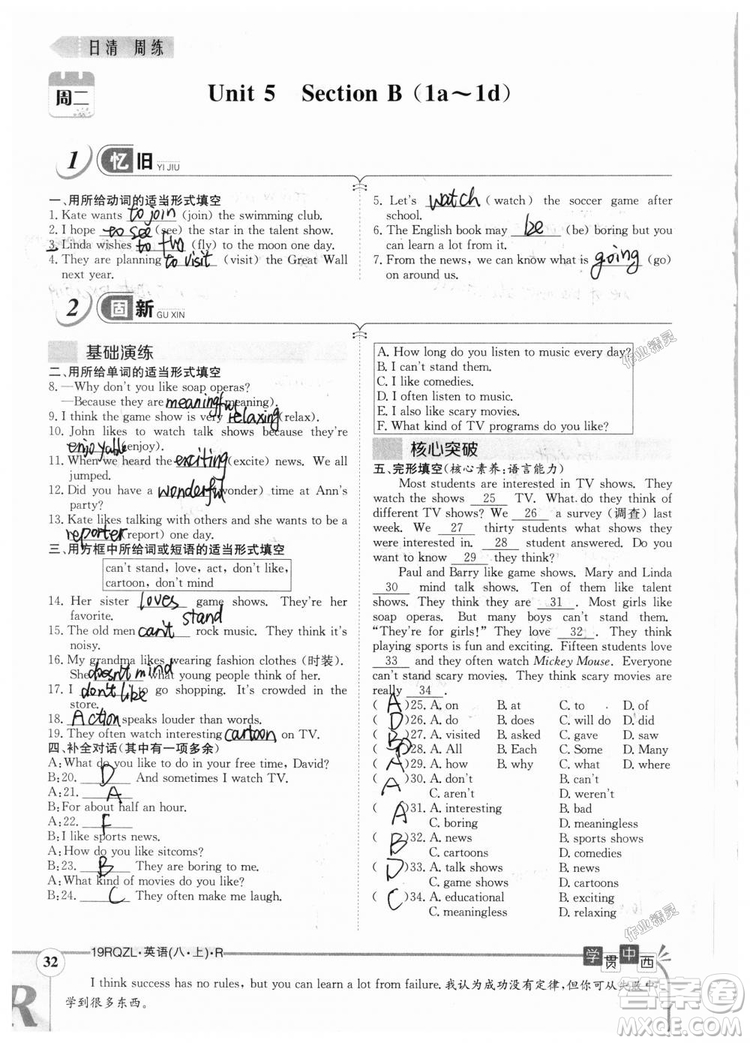 日清 周练
周二
Unit 5 Section B (1a～1d)
1 忆旧 YI JIU
一、用所给动词的适当形式填空
1. Kate wants to join (join) the swimming club.
2. I hope to see (see) the star in the talent show.
3. Linda wishes to fly (fly) to the moon one day.
4. They are planning to visit (visit) the Great Wall
next year.
5. Let's watch (watch) the soccer game after
school.
6. The English book may be (be) boring but you
can learn a lot from it.
7. From the news, we can find what is going (go)
on around us.
2 固新 GU XIN
基础演练
二、用所给单词的适当形式填空
8. —Why don't you like soap operas?
—Because they are meaningful (meaning).
9. I think the game show is very relaxing (relax).
10. John likes to watch talk shows because they're
enjoyable (enjoy).
11. When we heard the exciting (excite) news. We all
jumped.
12. Did you have a wonderful (wonder) time at Ann's
party?
13. Kate likes talking with others and she wants to be a
reporter (report) one day.
三、用方框中所给词或短语的适当形式填空
can't stand, love, act, don't like,
cartoon, don't mind
14. Her sister loves game shows. They're her
favorite.
15. The old men can't stand rock music. They think it's
noisy.
16. My grandma likes wearing fashion clothes (时装).
She doesn't mind what young people think of her.
17. I don't like to go shopping. It's crowded in the
store.
18. Action speaks louder than words.
19. They often watch interesting cartoon on TV.
四、补全对话(其中有一项多余)
A: What do you like to do in your free time, David?
B: 20. D And sometimes I watch TV.
A: 21. A
B: For about half an hour.
A: 22. F
B: I like sports news.
A: How do you like sitcoms?
B: 23. B They are boring to me.
A: What kind of movies do you like?
B: 24. C They often make me laugh.
A. How long do you listen to music every day?
B. I can't stand them.
C. I like comedies.
D. I usually listen to music.
E. I also like scary movies.
F. What kind of TV programs do you like?
核心突破
五、完形填空(核心素养:语言能力)
Most students are interested in TV shows. They
watch the shows 25 TV. What do they think of
different TV shows? We 26 a survey (调查) last
week. We 27 thirty students what shows they
watch. 28 students answered. Do you want to
know what 29 they think?
Paul and Barry like game shows. Mary and Linda
30 mind talk shows. Ten of them like talent
shows. They think they are 31 . Most girls like
soap operas. But many boys can't stand them.
“They're for girls!” They love 32 . They think
playing sports is fun and exciting. Fifteen students will
33 and they often watch Mickey Mouse. Everyone
can't stand scary movies. They think scary movies are
really 34 .
( A )25. A. on B. at C. to D. of
( D )26. A. do B. does C. will do D. did
( B )27. A. visited B. asked C. gave D. told
28. A. All B. Each C. Some D. Many
( A )30. A. don't B. can't
C. aren't D. weren't
( A )31. A. interesting B. bad
C. boring D. meaningless
( B )32. A. news B. sports
C. cartoons D. comedies
( D )33. A. talk shows B. news
C. game shows D. cartoons
( )34. A. educational B. exciting
C. meaningless D. relaxing
32 19RQZL·英语(八·上)·R
学贯中西
I think success has no rules, but you can learn a lot from failure. 我认为成功没有定律,但你可以从失败中
学到很多东西。
作业精灵
作业精灵
答案圈